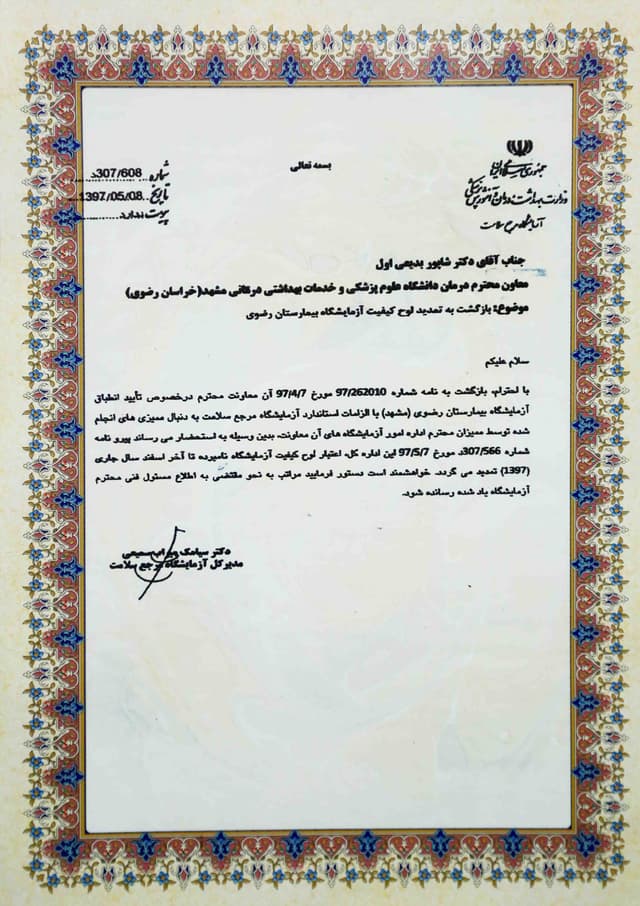 بسمه تعالی
جمهوری اسلامی ایران
وزارت بهداشت، درمان و آموزش پزشکی
آزمایشگاه مرجع سلامت
شماره...307/608د
تاریخ...1397/05/08
پیوست ندارد
جناب آقای دکتر شاپور بدیعی اول
معاون محترم درمان دانشگاه علوم پزشکی و خدمات بهداشتی درمانی مشهد(خراسان رضوی)
موضوع: بازگشت به تمدید لوح کیفیت آزمایشگاه بیمارستان رضوی
سلام علیکم
با احترام، بازگشت به نامه شماره 97/262010 مورخ 97/4/7 آن معاونت محترم درخصوص تأیید انطباق
آزمایشگاه بیمارستان رضوی (مشهد) با الزامات استاندارد آزمایشگاه مرجع سلامت به دنبال ممیزی های انجام
شده توسط ممیزان محترم اداره امور آزمایشگاه های آن معاونت، بدین وسیله به استحضار می رساند پیرو نامه
شماره 307/566د مورخ 97/5/7 این اداره کل، اعتبار لوح کیفیت آزمایشگاه نامبرده تا آخر اسفند سال جاری
(1397) تمدید می گردد. خواهشمند است دستور فرمایید مراتب به نحو مقتضی به اطلاع مسئول فنی محترم
آزمایشگاه یاد شده رسانده شود.
دکتر سیامک میراب سمیعی
مدیرکل آزمایشگاه مرجع سلامت